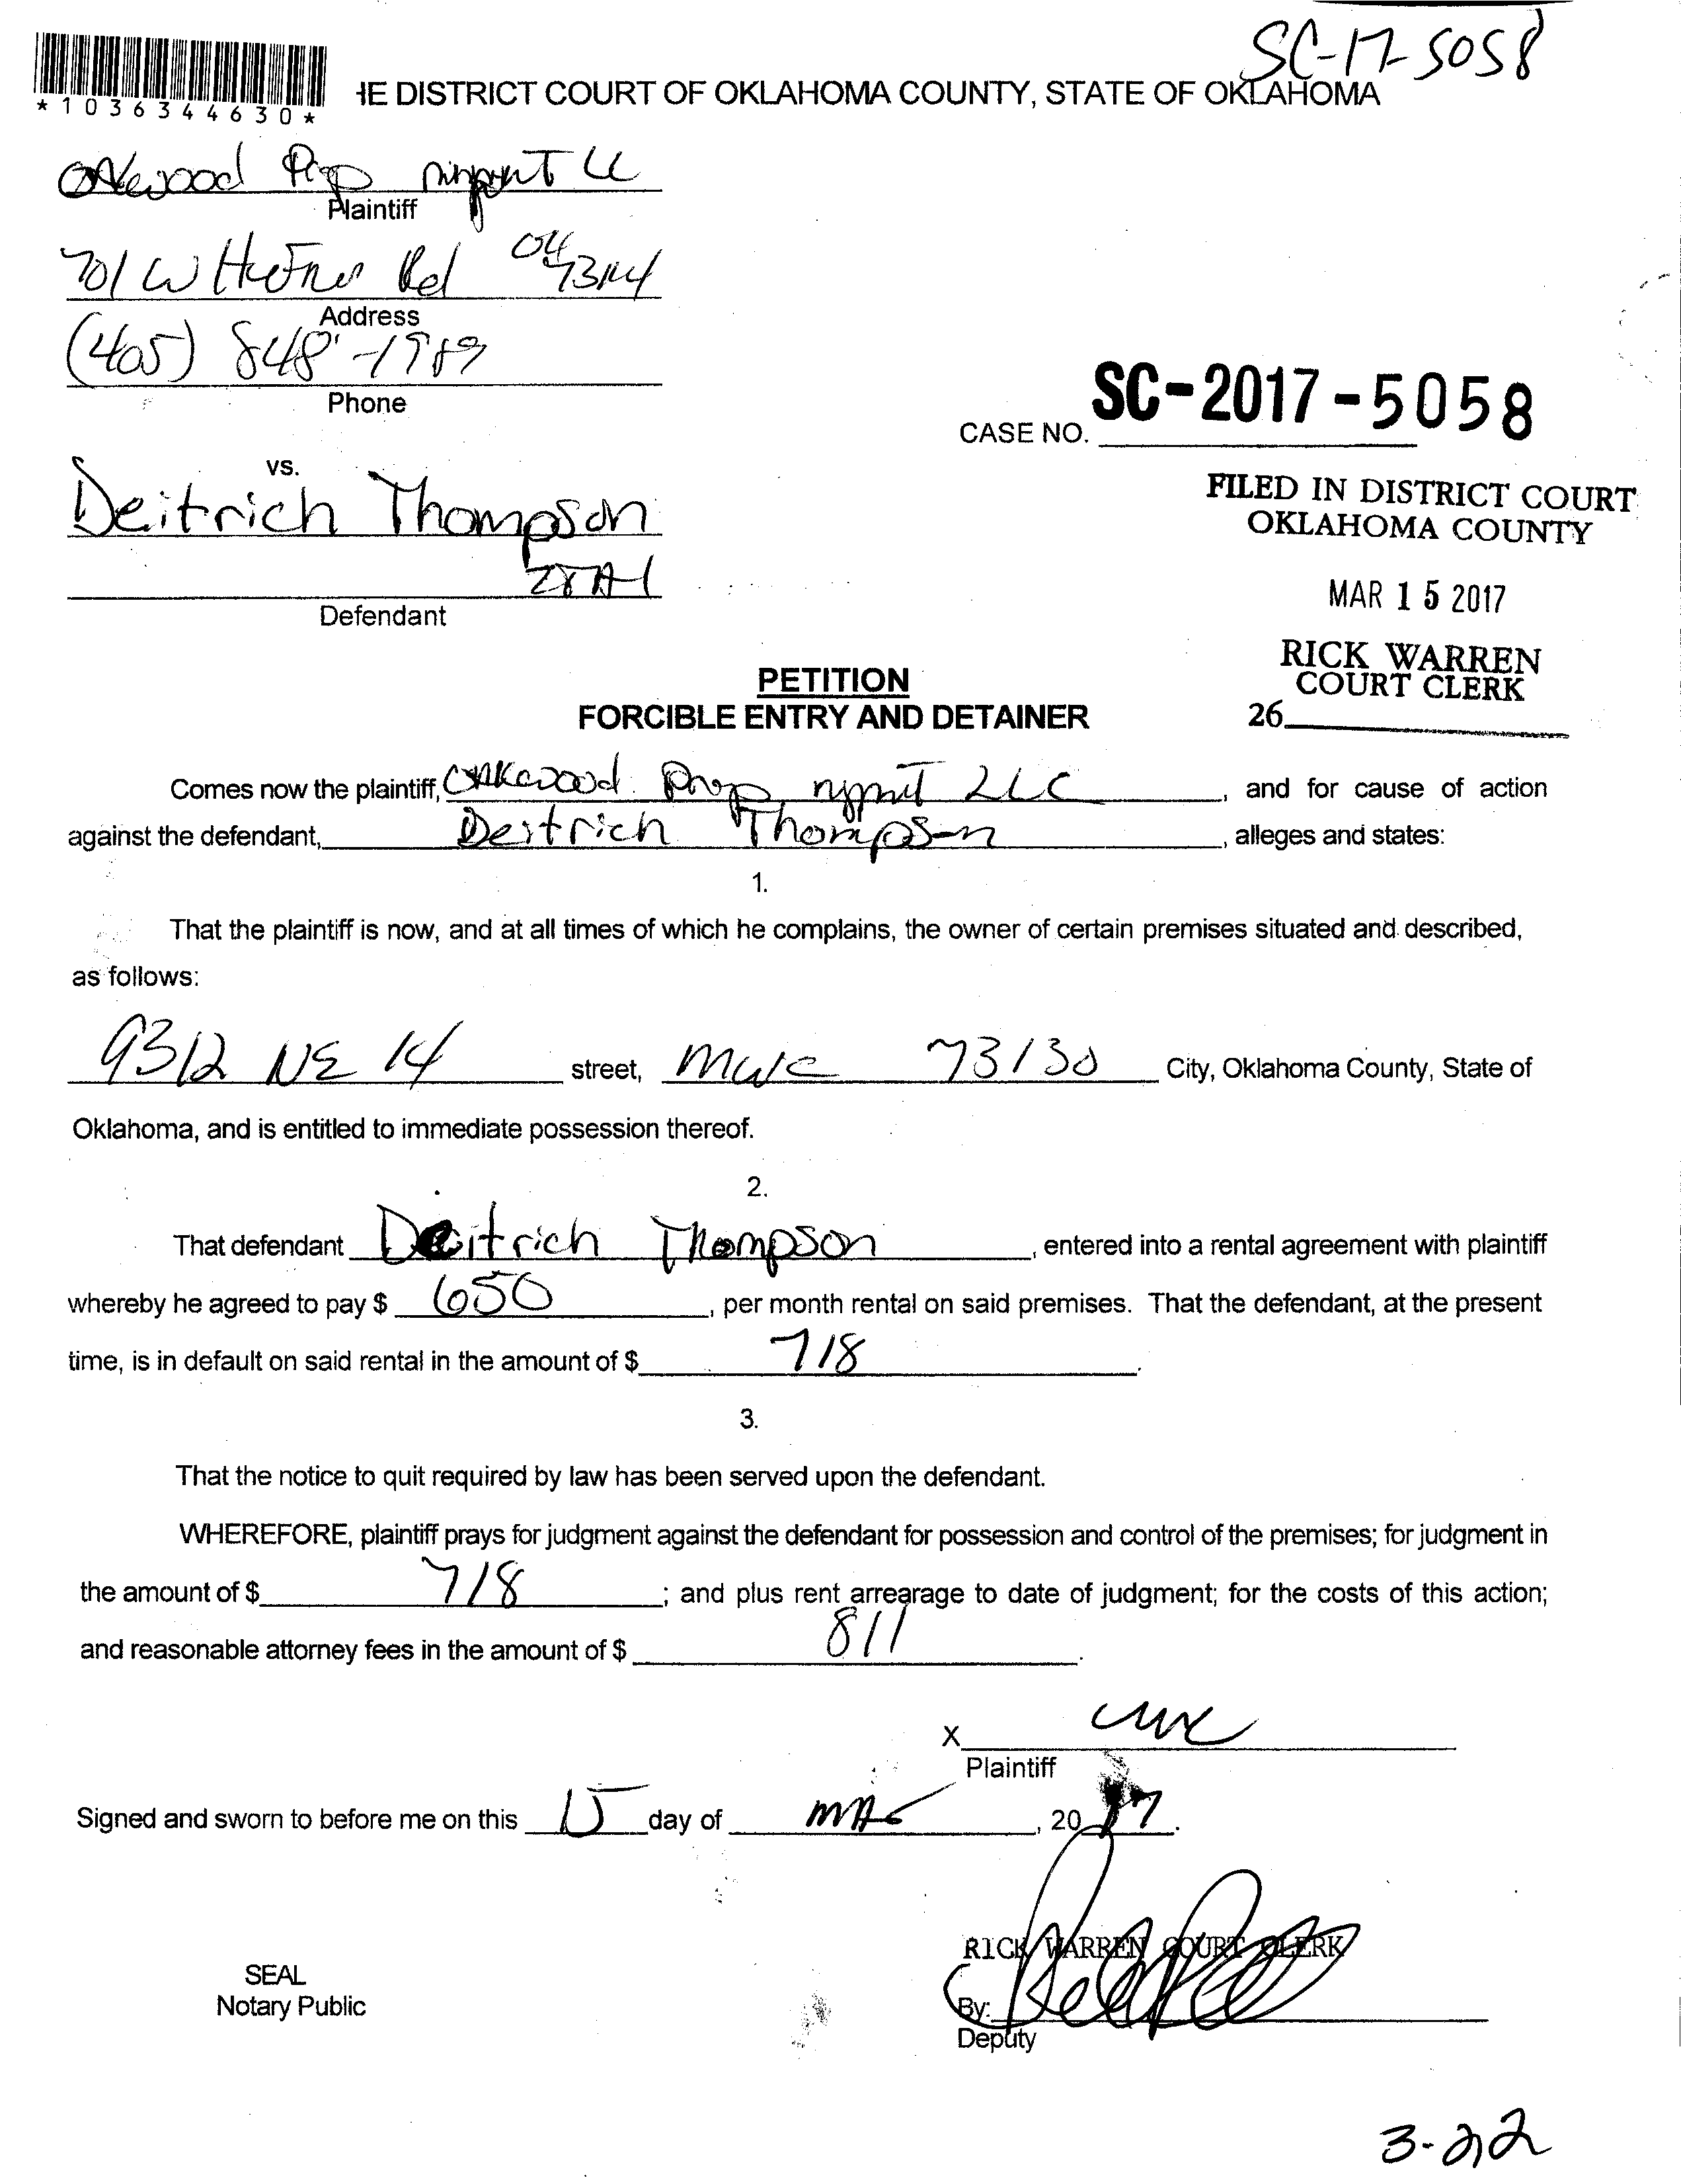 SC-17-5058
*1036344630*
HE DISTRICT COURT OF OKLAHOMA COUNTY, STATE OF OKLAHOMA
Oakwood Prop LL
Plaintiff
701 W Hefner Rd 73114
Address
(405) 848-1989
Phone
SC-2017-5058
CASE NO.
vs.
Deitrich Thompson
FILED IN DISTRICT COURT
OKLAHOMA COUNTY
Defendant
MAR 15 2017
RICK WARREN
COURT CLERK
26
PETITION
FORCIBLE ENTRY AND DETAINER
Comes now the plaintiff, Oakwood Prop mgmt LLC, and for cause of action
against the defendant, Deitrich Thompson, alleges and states:
1.
That the plaintiff is now, and at all times of which he complains, the owner of certain premises situated and described,
as follows:
9312 NE 14 street, MWC 73130 City, Oklahoma County, State of
Oklahoma, and is entitled to immediate possession thereof.
2.
That defendant Deitrich Thompson, entered into a rental agreement with plaintiff
whereby he agreed to pay $ 650, per month rental on said premises. That the defendant, at the present
time, is in default on said rental in the amount of $ 718.
3.
That the notice to quit required by law has been served upon the defendant.
WHEREFORE, plaintiff prays for judgment against the defendant for possession and control of the premises; for judgment in
the amount of $ 718; and plus rent arrearage to date of judgment; for the costs of this action;
and reasonable attorney fees in the amount of $ 811.
X
Plaintiff
Signed and sworn to before me on this 15 day of MAR, 2017.
RICK WARREN COURT CLERK
SEAL
Notary Public
By:
Deputy
3-22